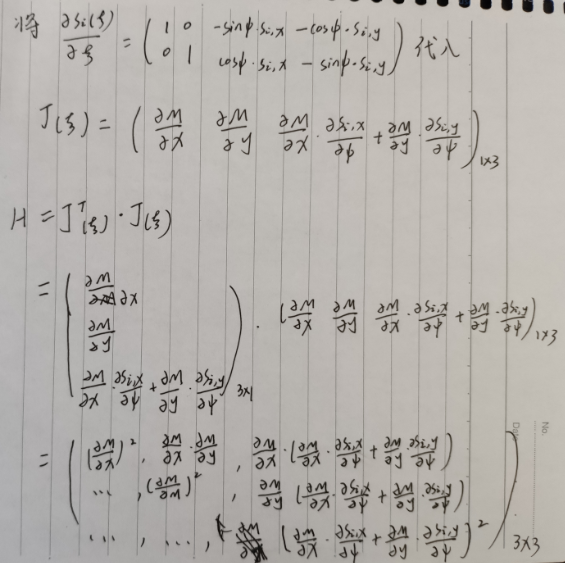 将 ∂Si(ξ)/∂ξ = ( 1 0 -sinψ·Si,x - cosψ·Si,y
0 1 cosψ·Si,x - sinψ·Si,y ) 代入
J(ξ) = ( ∂M/∂x ∂M/∂y ∂M/∂x · ∂Si,x/∂ψ + ∂M/∂y · ∂Si,y/∂ψ )1×3
H = J^T(ξ) · J(ξ)
= ( ∂M/∂x
∂M/∂y
∂M/∂x · ∂Si,x/∂ψ + ∂M/∂y · ∂Si,y/∂ψ )3×1 · ( ∂M/∂x ∂M/∂y ∂M/∂x · ∂Si,x/∂ψ + ∂M/∂y · ∂Si,y/∂ψ )1×3
= ( (∂M/∂x)^2 , ∂M/∂x · ∂M/∂y , ∂M/∂x · (∂M/∂x · ∂Si,x/∂ψ + ∂M/∂y · ∂Si,y/∂ψ)
... , (∂M/∂M)^2 , ∂M/∂y (∂M/∂x · ∂Si,x/∂ψ + ∂M/∂y · ∂Si,y/∂ψ)
... , ... , (∂M/∂x · ∂Si,x/∂ψ + ∂M/∂y · ∂Si,y/∂ψ)^2 )3×3
No.